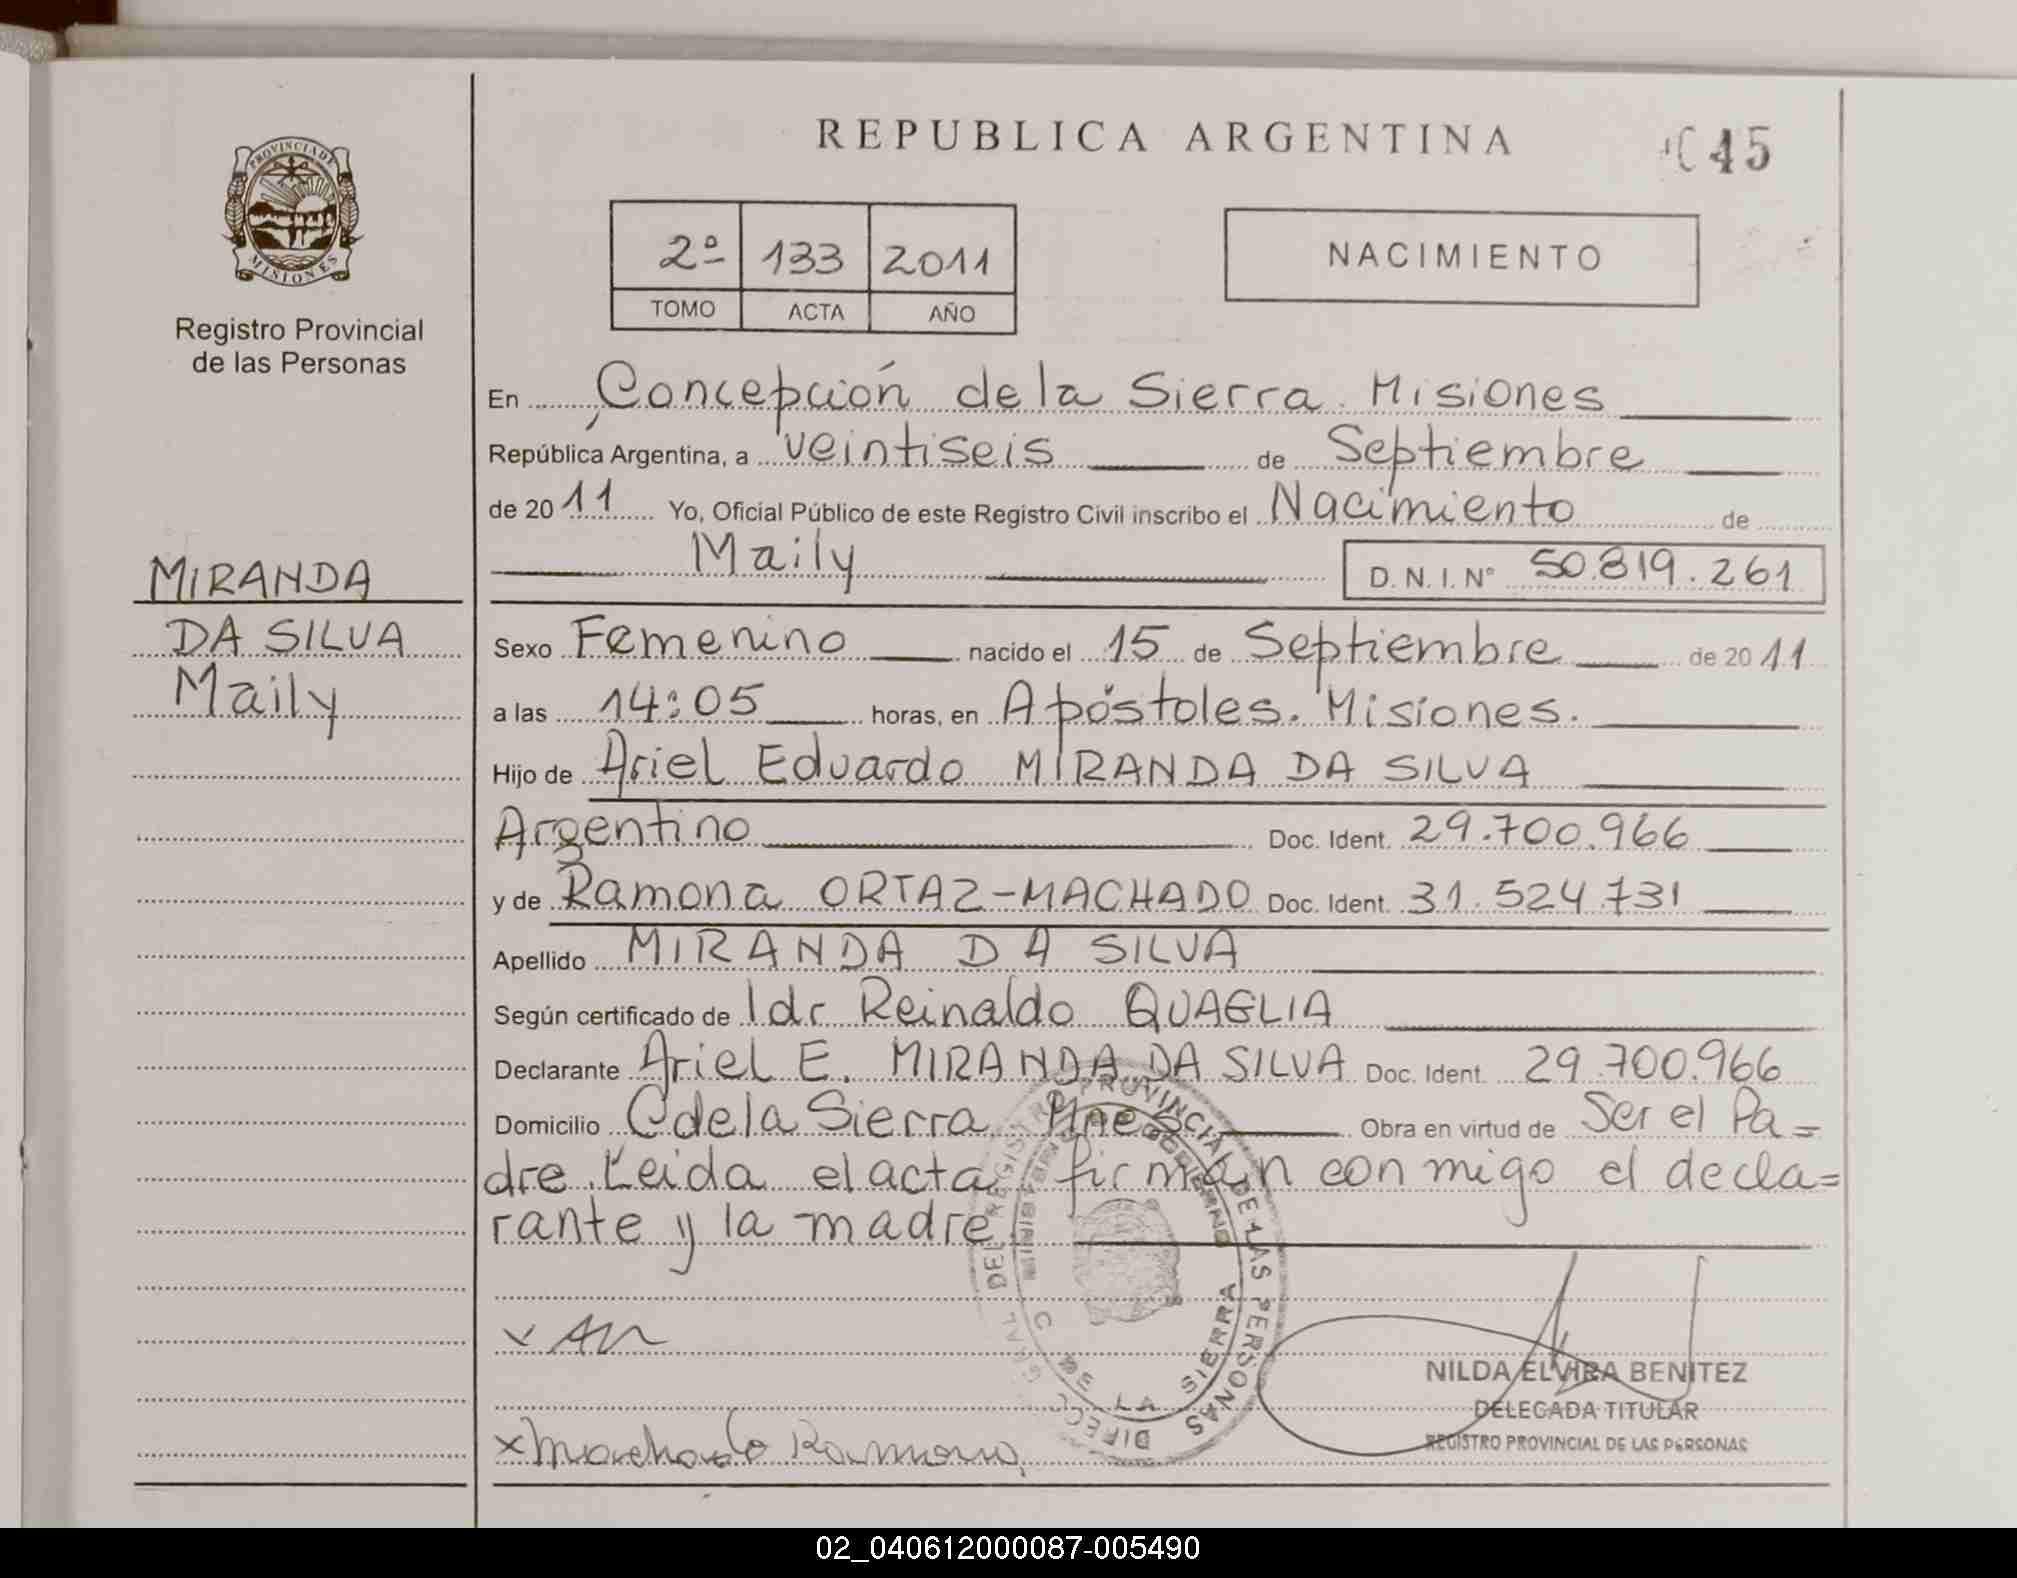 REPUBLICA ARGENTINA
45
PROVINCIA DE
MISIONES
Registro Provincial
de las Personas
2º 133 2011
TOMO ACTA AÑO
NACIMIENTO
En Concepción de la Sierra. Misiones
República Argentina, a veintiseis de Septiembre
de 2011 Yo, Oficial Público de este Registro Civil inscribo el Nacimiento de
Maily D.N.I. Nº 50.819.261
MIRANDA
DA SILVA
Maily
Sexo Femenino nacido el 15 de Septiembre de 2011
a las 14:05 horas, en Apóstoles. Misiones.
Hijo de Ariel Eduardo MIRANDA DA SILVA
Argentino Doc. Ident. 29.700.966
y de Ramona ORTAZ-MACHADO Doc. Ident. 31.524.731
Apellido MIRANDA DA SILVA
Según certificado de Idr Reinaldo QUAGLIA
Declarante Ariel E. MIRANDA DA SILVA Doc. Ident. 29.700.966
Domicilio C de la Sierra Mnes. Obra en virtud de Ser el Pa=
dre. Leida el acta firman conmigo el decla=
rante y la madre.
DEL REGISTRO PROVINCIAL DE LAS PERSONAS
C DE LA SIERRA
x Machado Ramona
NILDA ELVIRA BENITEZ
DELEGADA TITULAR
REGISTRO PROVINCIAL DE LAS PERSONAS
02_040612000087-005490